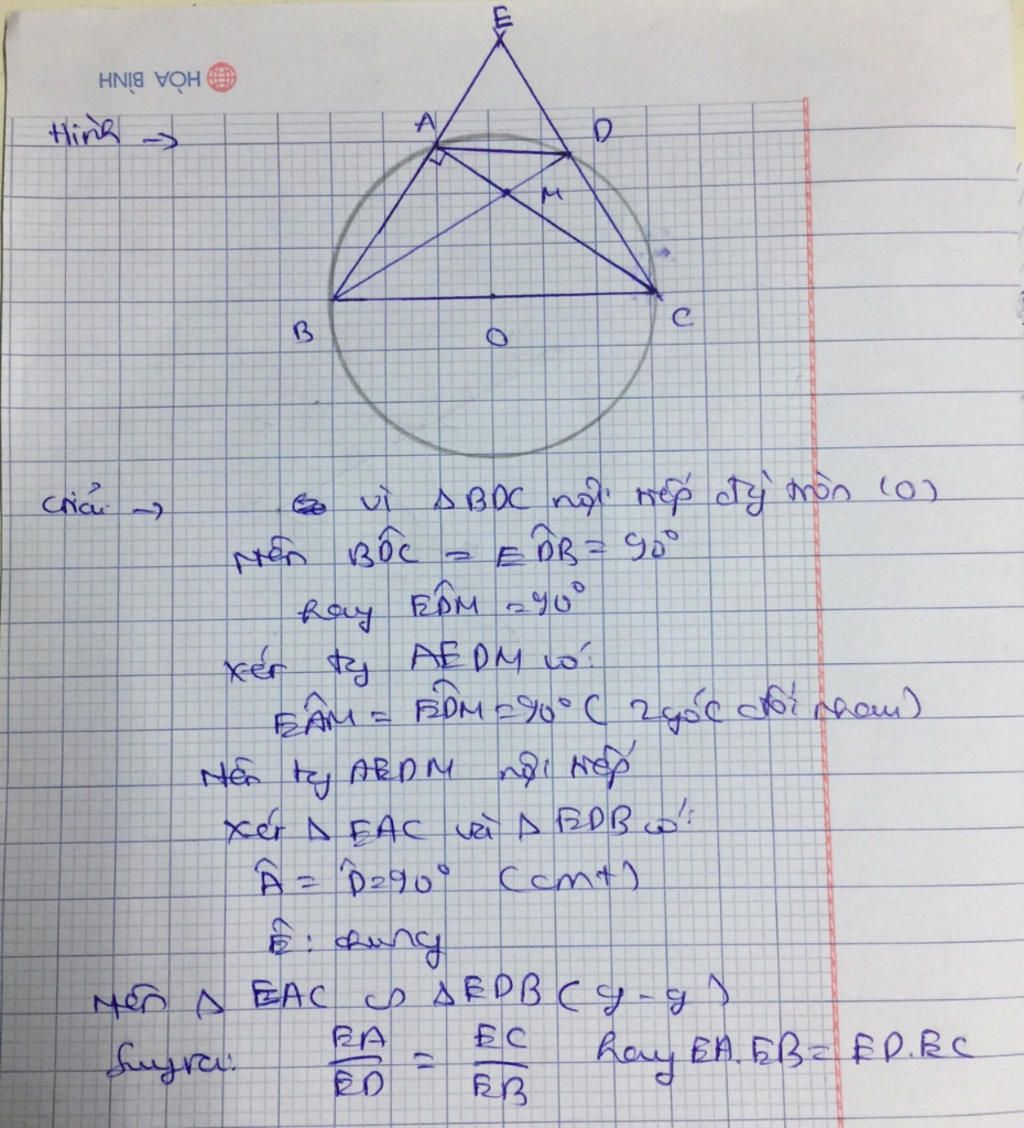 HÒA BÌNH
E
Hình →
A
D
M
B
O
C
Giải → Vì ΔBDC nội tiếp đg tròn (O)
Nên BD̂C = ED̂B = 90°
hay ED̂M = 90°
Xét tg AEDM có:
EÂM = ED̂M = 90° ( 2 góc đối nhau)
Nên tg AEDM nội tiếp
Xét Δ EAC và Δ EDB có:
Â = D̂ = 90° (cmt)
Ê : chung
Nên Δ EAC ∽ ΔEDB ( g - g )
Suy ra: EA/ED = EC/EB hay EA.EB = ED.EC